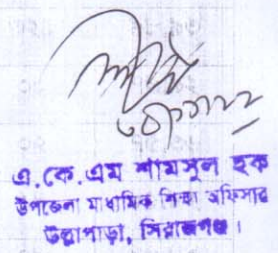 এ.কে.এম শামসুল হক
উপজেলা মাধ্যমিক শিক্ষা অফিসার
উল্লাপাড়া, সিরাজগঞ্জ।